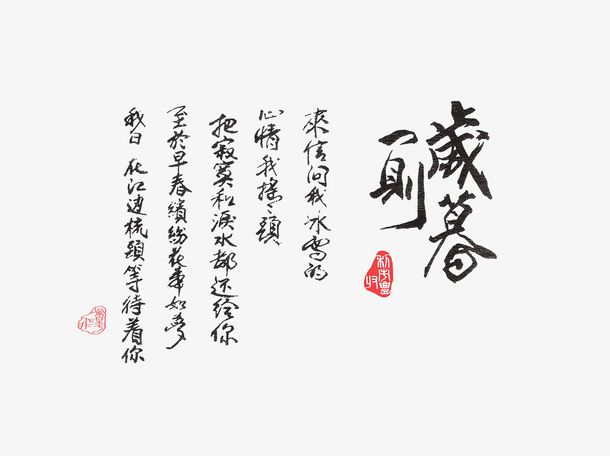 歲暮
一則
來信問我冰雪的
心情我搖〻頭
把寂寞和淚水都还给你
至於早春繽紛花事如夢
我日 在江边梳頭等待着你